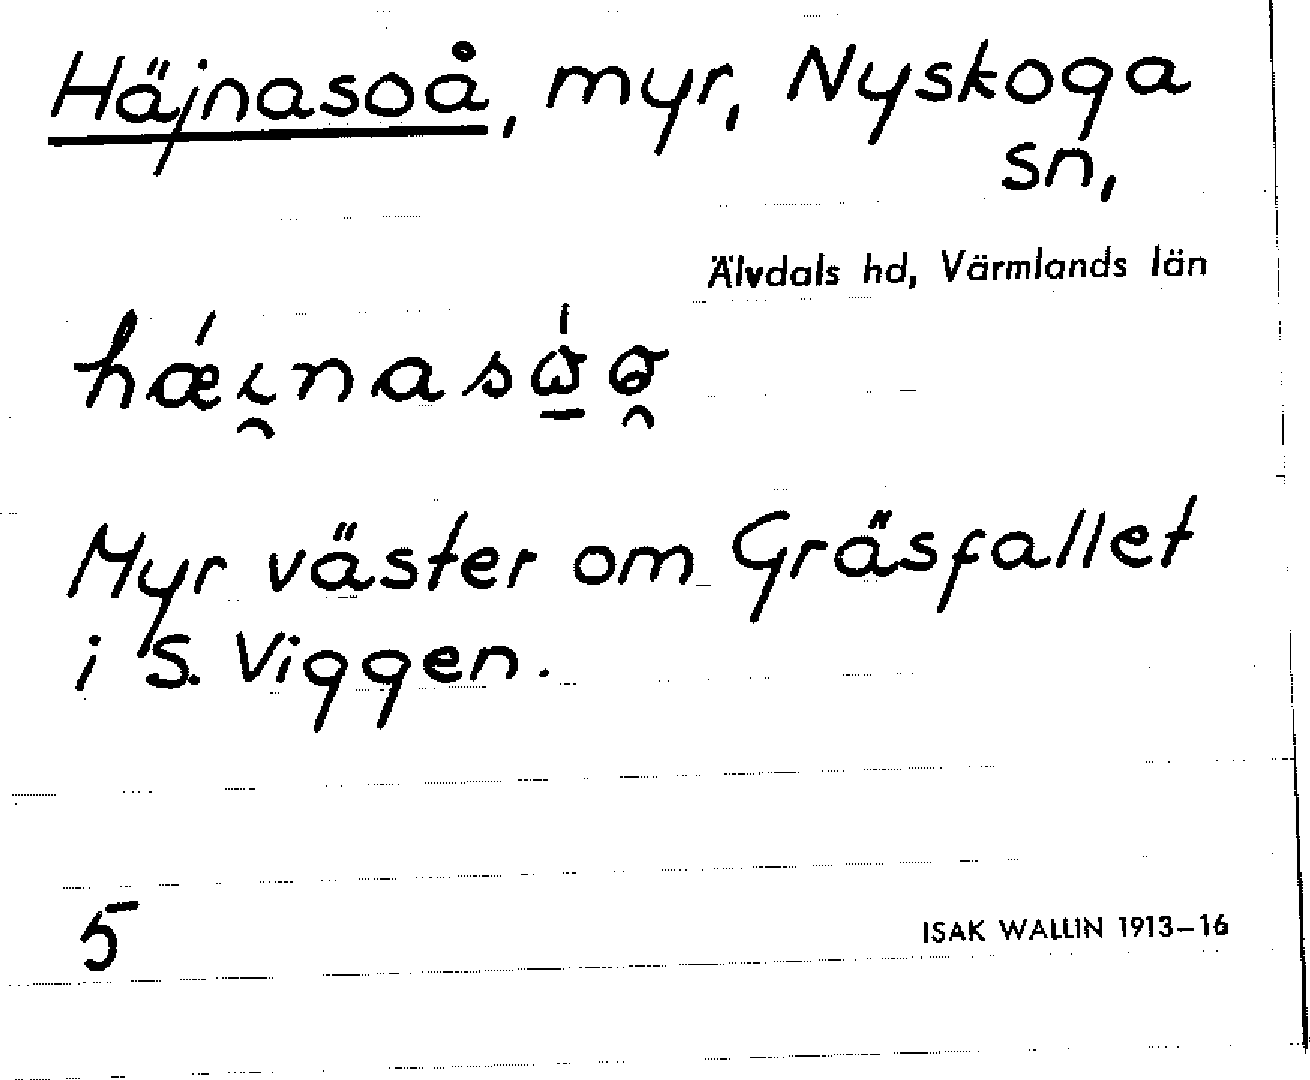 Häjnasoå, myr, Nyskoga
sn,
Älvdals hd, Värmlands län
hǽi̯nasώ̱ɞ̯
Myr väster om Gräsfallet
i S. Viggen.
5
ISAK WALLIN 1913–16